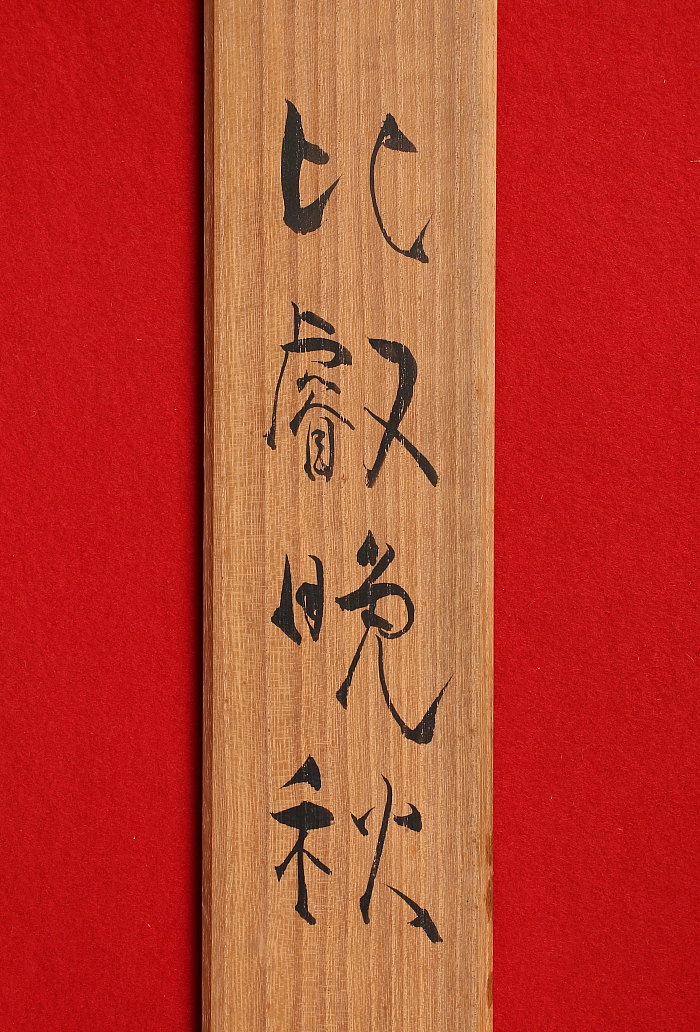 比叡晩秋